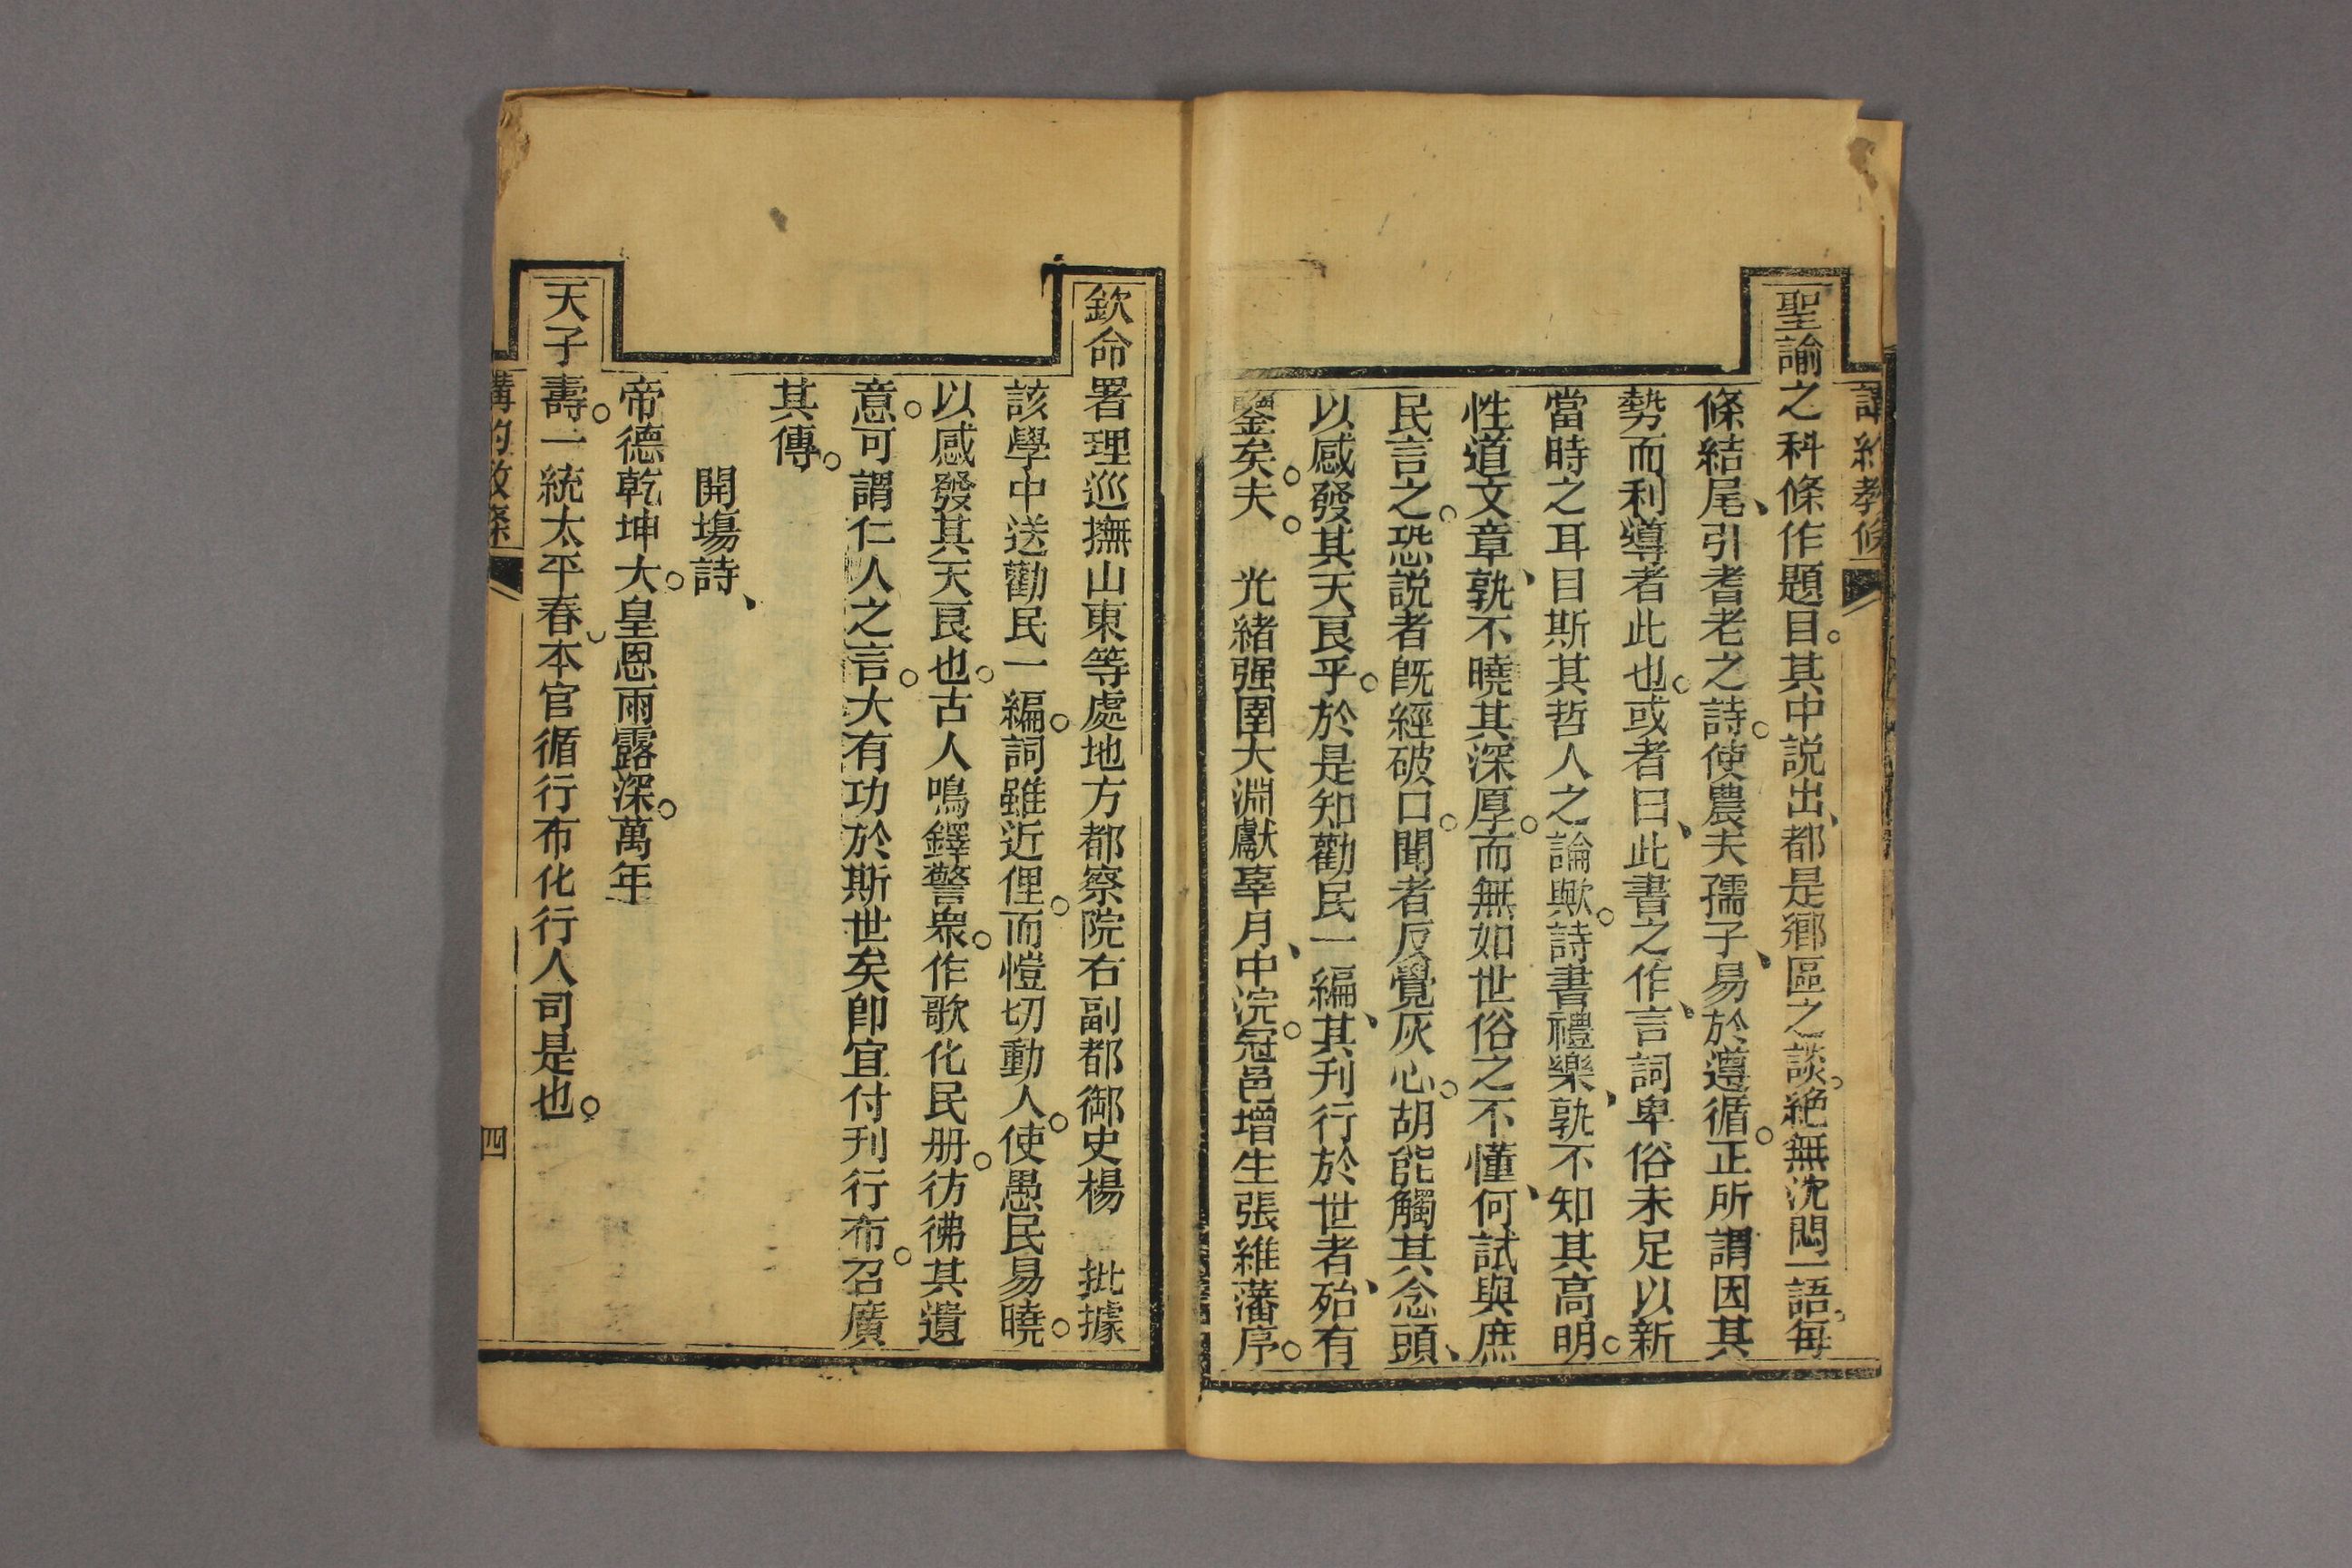 講約教條
聖諭之科條作題目。其中説出、都是鄉區之談。絶無沈悶一語。每
條結尾、引耆老之詩。使農夫孺子、易於遵循。正所謂因其
勢而利導者此也。或者曰、此書之作、言詞卑俗未足以新
當時之耳目斯其哲人之論歟。詩書禮樂、孰不知其高明。
性道文章、孰不曉其深厚。而無如世俗之不懂、何試與庶
民言之。恐説者既經破口。聞者反覺灰心。胡能觸其念頭、
以感發其天良乎。於是知勸民一編、其刋行於世者、殆有
鑒矣。夫。 光緒强圉大淵獻辜月、中浣。冠邑增生張維藩序。
欽命署理巡撫山東等處地方都察院右副都御史楊 批據
該學中送勸民一編。詞雖近俚。而愷切動人。使愚民易曉。
以感發其天良也。古人鳴鐸警衆。作歌化民册。彷彿其遺
意。可謂仁人之言。大有功於斯世矣卽宜付刋行布。召廣
其傳。
開塲詩、
帝德乾坤大。皇恩雨露深。萬年
天子壽。一統太平春。本官循行布化行人司是也。
講約教條
四